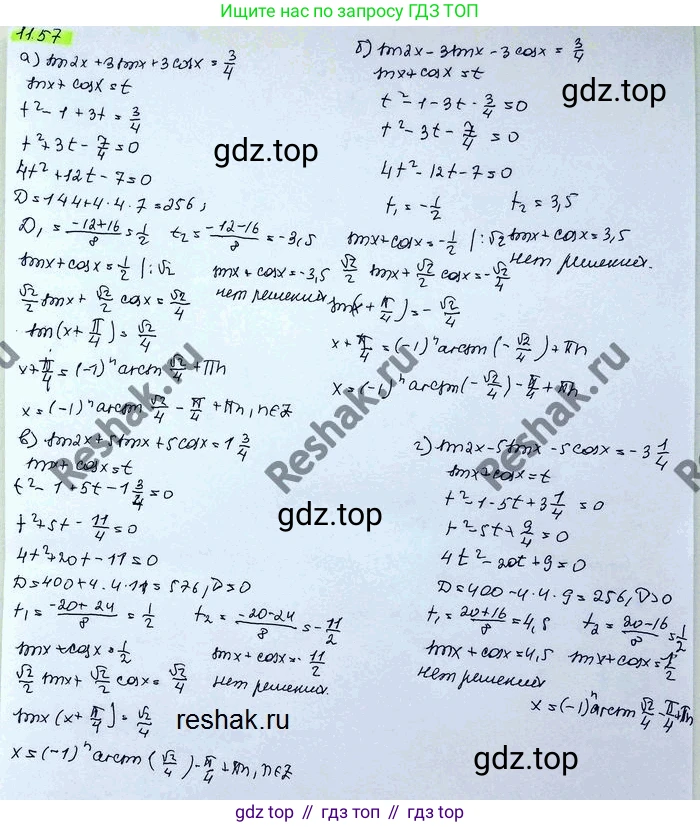 Ищите нас в интернете
по запросу ГДЗ ТОП
11.57
а) sin2x + 3sinx + 3cosx = 3/4
sinx + cosx = t
t² - 1 + 3t = 3/4
t² + 3t - 7/4 = 0
4t² + 12t - 7 = 0
D = 144 + 4·4·7 = 256;
D₁ = (-12+16)/8 = 1/2 t₂ = (-12-16)/8 = -3,5
sinx + cosx = 1/2 |:√2 sinx + cosx = -3,5
нет решений
√2/2 sinx + √2/2 cosx = √2/4
sin(x + π/4) = √2/4
x + π/4 = (-1)ⁿ arcsin √2/4 + πn
x = (-1)ⁿ arcsin √2/4 - π/4 + πn, n∈Z
б) sin2x - 3sinx - 3cosx = 3/4
sinx + cosx = t
t² - 1 - 3t - 3/4 = 0
t² - 3t - 7/4 = 0
4t² - 12t - 7 = 0
t₁ = -1/2 t₂ = 3,5
sinx + cosx = -1/2 |:√2 sinx + cosx = 3,5
нет решений.
√2/2 sinx + √2/2 cosx = -√2/4
sin(x + π/4) = -√2/4
x + π/4 = (-1)ⁿ arcsin(-√2/4) + πn
x = (-1)ⁿ arcsin(-√2/4) - π/4 + πn
в) sin2x + 5sinx + 5cosx = 1 3/4
sinx + cosx = t
t² - 1 + 5t - 1 3/4 = 0
t² + 5t - 11/4 = 0
4t² + 20t - 11 = 0
D = 400 + 4·4·11 = 576, D>0
t₁ = (-20+24)/8 = 1/2 t₂ = (-20-24)/8 = -11/2
sinx + cosx = 1/2 sinx + cosx = -11/2
√2/2 sinx + √2/2 cosx = √2/4 нет решений.
sinx(x + π/4) = √2/4
x = (-1)ⁿ arcsin(√2/4) - π/4 + πn, n∈Z
г) sin2x - 5sinx - 5cosx = -3 1/4
sinx + cosx = t
t² - 1 - 5t + 3 1/4 = 0
t² - 5t + 9/4 = 0
4t² - 20t + 9 = 0
D = 400 - 4·4·9 = 256, D>0
t₁ = (20+16)/8 = 4,5 t₂ = (20-16)/8 = 1/2
sinx + cosx = 4,5 sinx + cosx = 1/2
нет решений
x = (-1)ⁿ arcsin √2/4 - π/4 + πn
gdz.top
gdz.top
gdz.top
gdz.top
gdz.top
Reshak.ru
Reshak.ru
Reshak.ru
Reshak.ru
reshak.ru
gdz top // гдз топ // gdz top